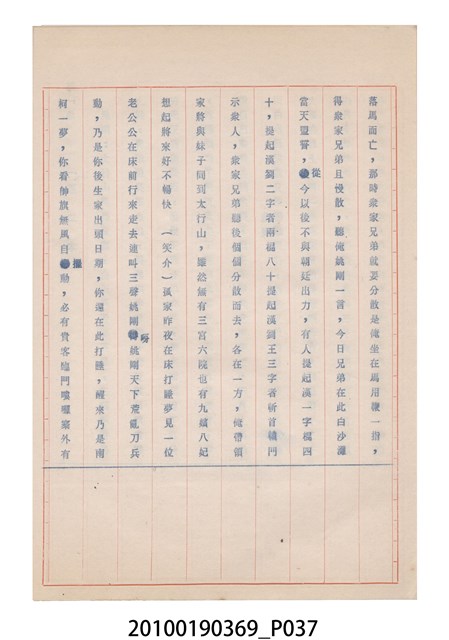 落馬而亡，那時衆家兄弟就要分散是俺坐在馬用鞭一指，
得衆家兄弟且慢散，聽俺姚剛一言，今日兄弟在此白沙灘
當天盟誓，從今以後不與朝廷出力，有人提起漢一字棍四
十，提起漢劉二字者兩棍八十提起漢劉王三字者斬首轅門
示衆人，衆家兄弟聽後個個分散而去，各在一方，俺帶領
家將與妹子同到太行山，雖然無有三宮六院也有九嬪八妃
想起將來好不暢快（笑介）孤家昨夜在床打睡夢見一位
老公公在床前行來走去連叫三聲姚剛呀姚剛天下荒亂刀兵
動，乃是你後生家出頭日期，你還在此打睡，醒來乃是南
柯一夢，你看帥旗無風自擺動，必有貴客臨門嘍囉寨外有
20100190369_P037